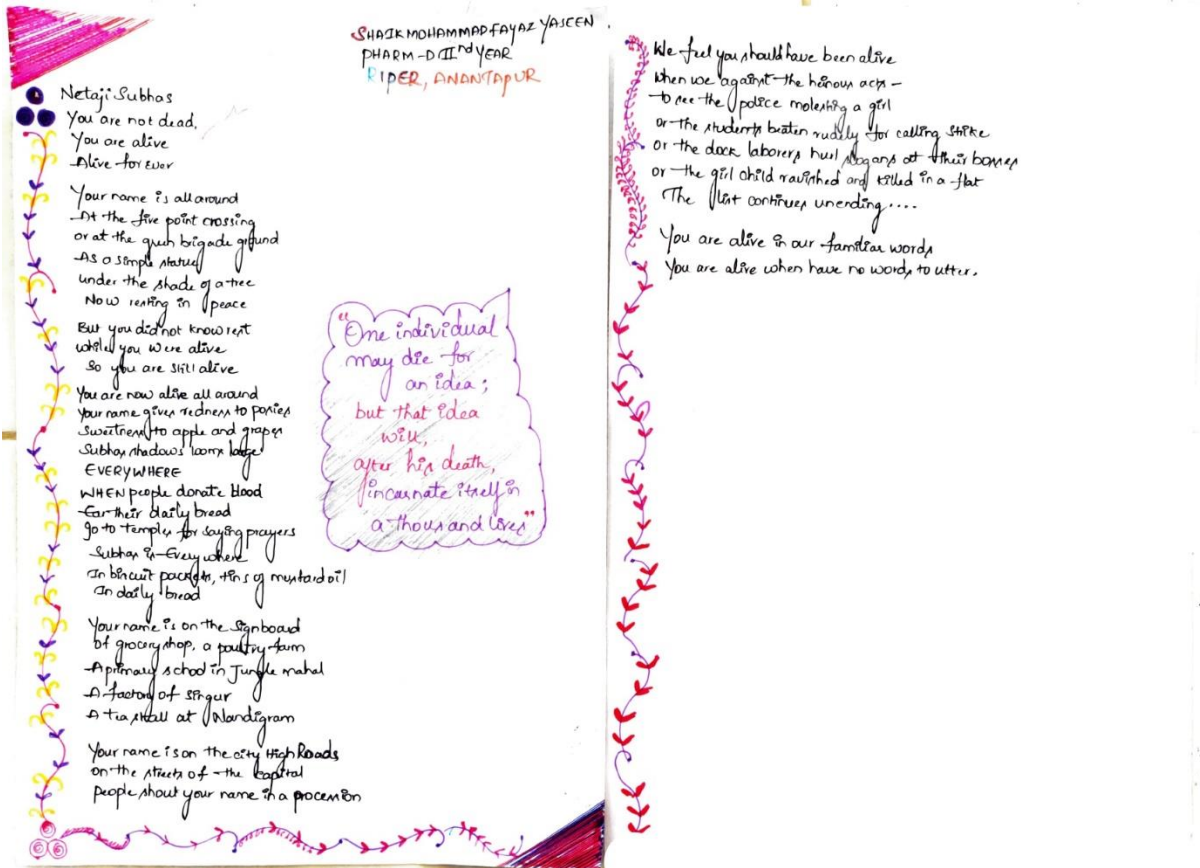 SHAIK MOHAMMAD FAYAZ YASEEN
PHARM-D IInd YEAR
RIPER, ANANTAPUR
Netaji Subhas
You are not dead,
You are alive
Alive for Ever
Your name is all around
At the five point crossing
or at the green brigade ground
As a simple statue
under the shade of a tree
Now resting in peace
But you did not know rest
while you were alive
So you are still alive
You are now alive all around
Your name gives redness to posies
Sweetness to apple and grapes
Subhas shadows looms large
EVERYWHERE
WHEN people donate blood
Ear their daily bread
go to temples for saying prayers
Subhas is Every where
In biscuit packets, tins of mustard oil
In daily bread
Your name is on the signboard
of grocery shop, a poultry farm
A primary school in Jungle mahal
A factory of singur
A tea stall at Nandigram
Your name is on the city High Roads
on the streets of the capital
people shout your name in a procession
"One individual
may die for
an idea;
but that idea
will,
after his death,
incarnate itself in
a thousand lives"
We feel you should have been alive
when we against the heinous acts -
to see the police molesting a girl
or the students beaten rudely for calling strike
or the dock laborers hurl slogans at their bosses
or the girl child ravished and killed in a flat
The list continues unending....
You are alive in our familiar words
You are alive when have no words to utter.